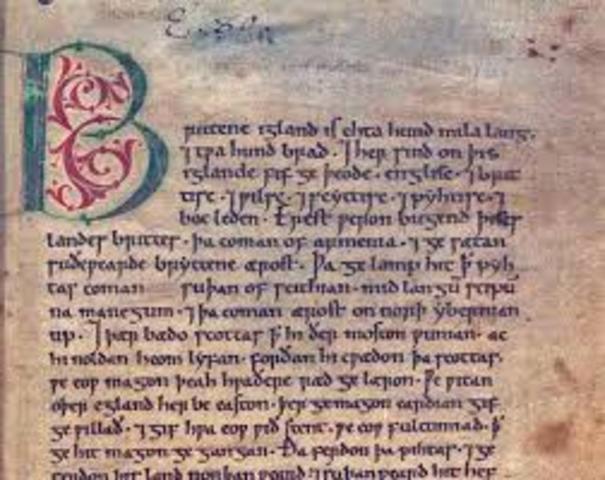 Brittene igland is ehta hund mila lang.
⁊ tƿa hund brad. ⁊ her sind on þis
iglande fif ge þeode. englisc. ⁊ brit
tisc. ⁊ ƿilsc. ⁊ scyttisc. ⁊ pyhtisc. ⁊
boc leden. Erest ƿeron bugend þises
landes brittes. þa coman of armenia. ⁊ ge sætan
suðeƿearde bryttene ærost. Þa ge lamp hit ꝥ pyh
tas coman suþan of scithian. mid langū scipū
na manegum. ⁊ þa coman ærost on norþ ybernian
up. ⁊ þær bædo scottas ꝥ hi ðer moston ƿunian. ac
hi noldan heom lyfan. forðan hi cƿædon þa scottas.
ƿe eoƿ magon þeah hƿaðere ræd ge læron. Ƿe ƿitan
oþer egland her be easton. þer ge magon eardian gif
ge ƿillað. ⁊ gif hƿa eoƿ ƿið stent. ƿe eoƿ fultumiað. ꝥ
ge hit magon ge gangan. Ða ferdon þa pihtas. ⁊ ge
ferdon þis land norþan ƿeard. ⁊ suþan ƿeard hit hef